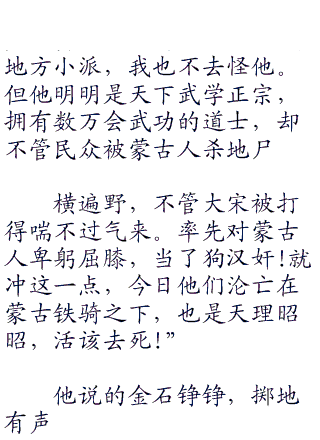 地方小派，我也不去怪他。
但他明明是天下武学正宗，
拥有数万会武功的道士，却
不管民众被蒙古人杀地尸
横遍野，不管大宋被打
得喘不过气来。率先对蒙古
人卑躬屈膝，当了狗汉奸!就
冲这一点，今日他们沦亡在
蒙古铁骑之下，也是天理昭
昭，活该去死!”
他说的金石铮铮，掷地
有声